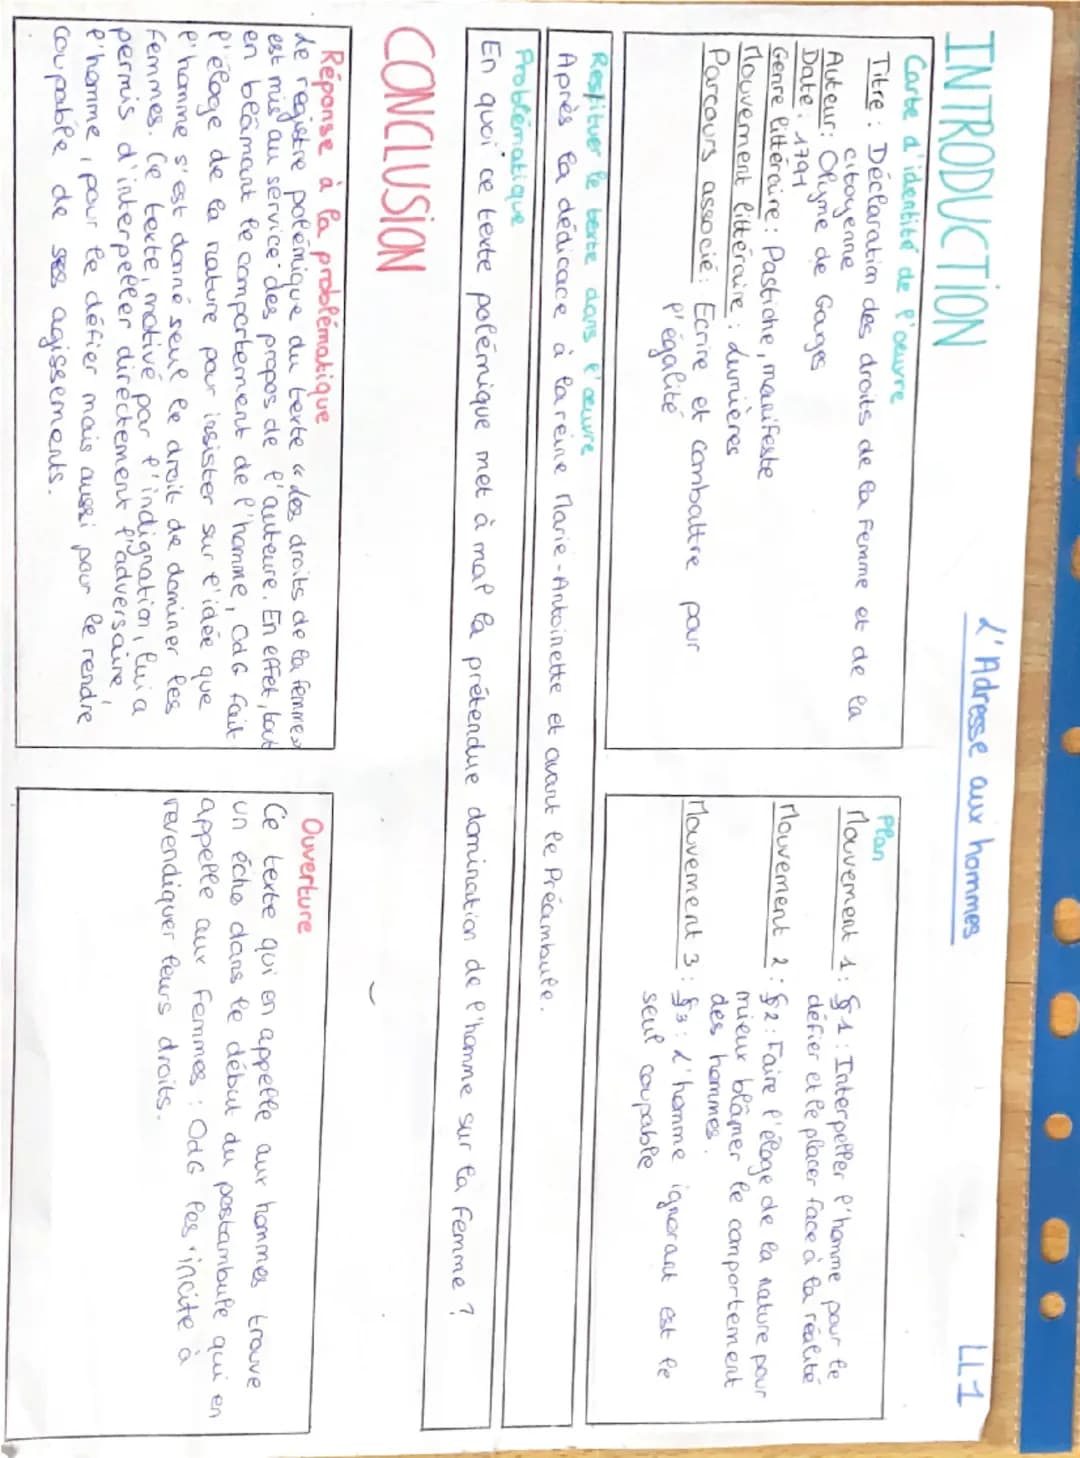 L'Adresse aux hommes
LL1
INTRODUCTION
Carte d'identité de l'œuvre
Titre : Déclaration des droits de la Femme et de la
citoyenne
Auteur : Olyme de Gouges
Date : 1791
Genre littéraire : Pastiche, manifeste
Mouvement littéraire : Lumières
Parcours associé : Ecrire et combattre pour
l'égalité
Plan
Mouvement 1 : §1 : Interpeller l'homme pour le
défier et le placer face à la réalité
Mouvement 2 : §2 : Faire l'éloge de la nature pour
mieux blâmer le comportement
des hommes.
Mouvement 3 : §3 : L'homme ignorant est le
seul coupable
Restituer le texte dans l'œuvre
Après la dédicace à la reine Marie-Antoinette et avant le Préambule.
Problématique
En quoi ce texte polémique met à mal la prétendue domination de l'homme sur la femme ?
CONCLUSION
Réponse à la problématique
Le registre polémique du texte « des droits de la femme »
est mis au service des propos de l'auteure. En effet, tout
en blâmant le comportement de l'homme, OdG fait
l'éloge de la nature pour insister sur l'idée que
l'homme s'est donné seul le droit de dominer les
femmes. Ce texte, motivé par l'indignation, lui a
permis d'interpeller directement l'adversaire,
l'homme, pour le défier mais aussi pour le rendre
coupable de ses agissements.
Ouverture
Ce texte qui en appelle aux hommes trouve
un écho dans le début du postambule qui en
appelle aux femmes : OdG les incite à
revendiquer leurs droits.